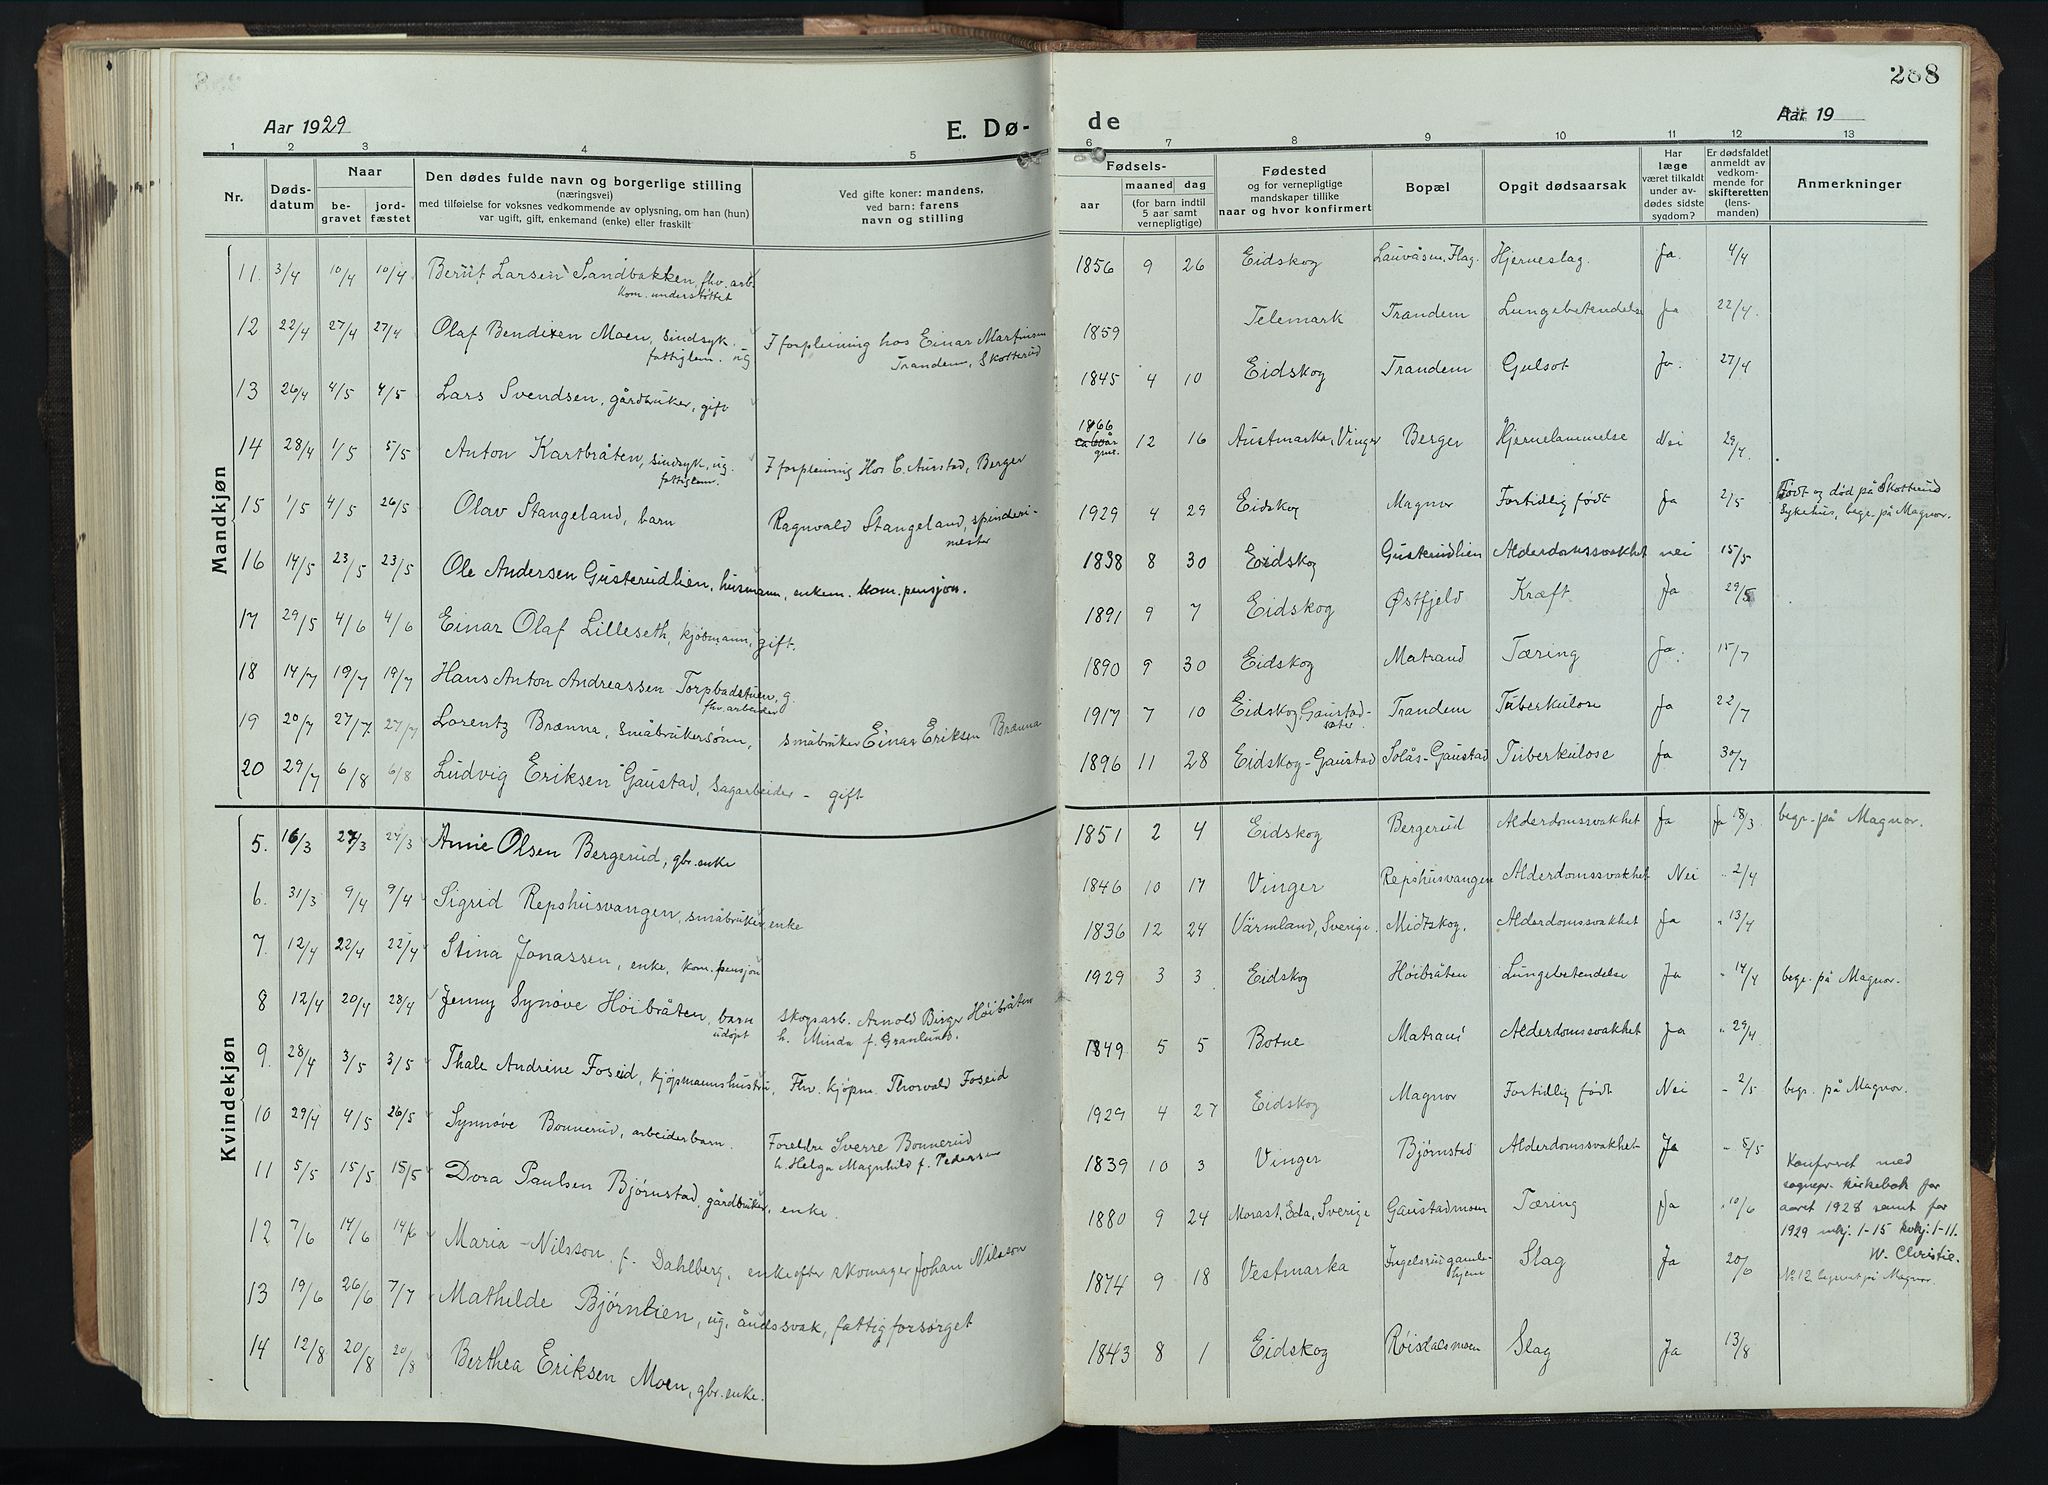 288
Aar 1929
E. Dø-
de
Aar 19
1 2 3 4 5 6 7 8 9 10 11 12 13
Nr.
Døds-
datum
Naar
be-
gravet
jord-
fæstet
Den dødes fulde navn og borgerlige stilling
(næringsvei)
med tilføielse for voksnes vedkommende av oplysning, om han (hun)
var ugift, gift, enkemand (enke) eller fraskilt
Ved gifte koner: mandens,
ved barn: farens
navn og stilling
Fødsels-
aar
maaned dag
(for barn indtil
5 aar samt
vernepligtige)
Fødested
og for vernepligtige
mandskaper tillike
naar og hvor konfirmert
Bopæl
Opgit dødsaarsak
Har
læge
været tilkaldt
under av-
dødes sidste
sygdom?
Er dødsfaldet
anmeldt av
vedkom-
mende for
skifteretten
(lens-
manden)
Anmerkninger
Mandkjøn
11. 3/4 10/4 10/4 Berut Larsen Sandbakken, fhv. arb. 1856 9 26 Eidskog Lauvåsen, Flag. Hjerneslag. Ja. 4/4
kom. understøttet
12 22/4 27/4 27/4 Olaf Bendixen Moen, sindsyk. I forpleining hos Einar Martinsen 1859 Telemark Trandem Lungebetendelse ja 22/4.
fattiglem. ug Trandem, Skotterud
13 26/4 4/5 4/5 Lars Svendsen, gårdbruker, gift 1845 4 10 Eidskog Trandem Gulsot Ja. 27/4
14 28/4 1/5 5/5 Anton Kartbråten, sindsyk, ug. I forpleining Hos C. Aurstad, Berger 1866 12 16 Austmarka, Vinger Berger Hjernelammelse Nei 29/4.
fattiglem. ca 60 år
15 1/5 4/5 26/5 Olav Stangeland, barn Ragnvald Stangeland, spinderi- 1929 4 29 Eidskog Magnor Fortidlig født Ja 2/5 Født og død på Skotterud
mester Sykehus, begr. på Magnor.
16 14/5 23/5 23/5 Ole Andersen Gusterudlien, husmann, enkem. kom. pensjon. 1838 8 30 Eidskog Gusterudlien Alderdomssvakhet nei 15/5
17 29/5 4/6 4/6 Einar Olaf Lilleseth, kjøbmann, gift. 1891 9 7 Eidskog Østfjeld Kræft Ja 29/5
18 14/7 19/7 19/7 Hans Anton Andreassen Torpbadstuen, g. 1890 9 30 Eidskog Matrand Tæring Ja. 15/7
fhv. arbeider
19 20/7 27/7. 27/7 Lorentz Brænna, småbrukersønn, småbruker Einar Eriksen Brænna 1917 7 10 Eidskog, Gaustad- Trandem Tuberkulose Ja 22/7
sæter
20 29/7 6/8 6/8 Ludvig Eriksen Gaustad, sagarbeider - gift 1896 11 28 Eidskog-Gaustad Solås-Gaustad Tuberkulose Ja 30/7
Kvindekjøn
5. 16/3 27/3 27/3 Anne Olsen Bergerud, gbr. enke 1851 2 4 Eidskog Bergerud Alderdomssvakhet Ja Ja 18/3. begr. på Magnor.
6. 31/3 9/4 9/4 Sigrid Repshusvangen, småbruker enke 1846 10 17 Vinger Repshusvangen Alderdomssvakhet Nei " 2/4
7. 12/4 22/4 22/4 Stina Jonassen, enke, kom. pensjon 1836 12 24 Värmland, Sverige. Midtskog. Alderdomssvakhet Ja " 13/4
8 12/4 20/4 28/4 Jenny Synøve Høibråten, barn skogsarb. Arnold Birger Høibråten 1929 3 3 Eidskog Høibråten Lungebetendelse Ja " 14/4 begr. på Magnor.
udøpt h. Minda f. Granlund.
9. 28/4 3/5 3/5 Thale Andrine Foseid, kjøpmannshustru, Fhv. kjøpm. Thorvald Foseid 1849 5 5 Botne Matrand Alderdomssvakhet Ja " 29/4.
10 29/4 4/5 26/5 Synnøve Bonnerud, arbeiderbarn. Foreldre Sverre Bonnerud 1929 4 27 Eidskog Magnor Fortidlig født Nei " 2/5 begr. på Magnor.
h. Helga Magnhild f. Pedersen
11 5/5 15/5 15/5 Dora Paulsen Bjørnstad, gårdbruker, enke. 1839 10 3 Vinger Bjørnstad Alderdomssvakhet Ja " 5/5
12 7/6 14/6 14/6 Maria Nilsson f. Dahlberg, enke efter skomager Johan Nilsson 1880 9 24 Morast, Eda, Sverige Gaustadmoen Tæring Ja " 10/6
13 19/6 26/6 7/7 Mathilde Bjørnlien, ug. åndssvak, fattigforsørget 1874 9 18 Vestmarka Ingelsrud gamle- Slag Ja 20/6
hjem
14 12/8 20/8 20/8 Berthea Eriksen Moen, gbr. enke. 1843 8 1 Eidskog Røisdalsmoen Slag Ja 13/8
Konferert med
sognepr. kirkebok for
aaret 1928 samt for
1929 mkj. 1-15 kvkj. 1-11.
W. Christie.
No 12 begravet på Magnor.